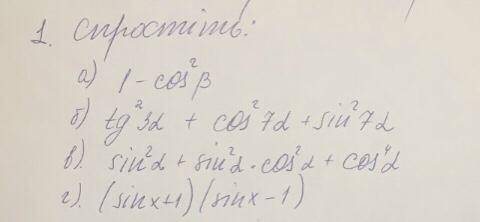 1. спростіть:
а) 1 - cos²β
б) tg²3α + cos²7α + sin²7α
в). sin²α + sin²α · cos²α + cos⁴α
г). (sinx+1)(sinx-1)